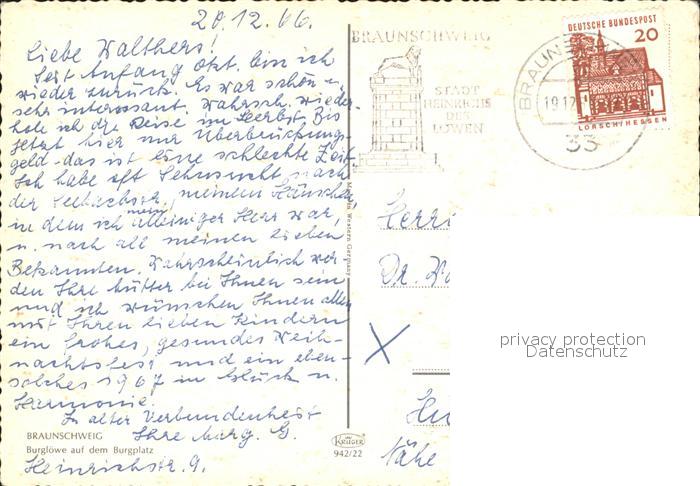 20.12.66.
Liebe Walthers!
Seit Anfang Okt. bin ich
wieder zurück. Es war schön u.
sehr interessant. Wahrsch. wieder-
hole ich die Reise im Herbst. Bis
jetzt hier nur Überbrückungs-
geld - das ist eine schlechte Zeit.
Ich habe oft Sehnsucht nach
der meinem Häuschen,
in dem ich mein alleiniger Herr war,
u. nach all meinen lieben
Bekannten. Wahrscheinlich wer-
den Ihre Mütter bei Ihnen sein
und ich wünschen Ihnen allen
mit Ihren lieben Kindern
ein frohes, gesundes Weih-
nachtsfest und ein eben-
solches 1967 in Glück u.
Harmonie.
In alter Verbundenheit
Ihre Marg. G.
Heinrichstr. 9.
BRAUNSCHWEIG
Burglöwe auf dem Burgplatz
KRÜGER
942/22
Made in Western Germany
BRAUNSCHWEIG
STADT
HEINRICHS
DES
LÖWEN
BRAUN
19.12
33
DEUTSCHE BUNDESPOST
20
LORSCH/HESSEN
Herrn
Dr. Wa
privacy protection
Datenschutz